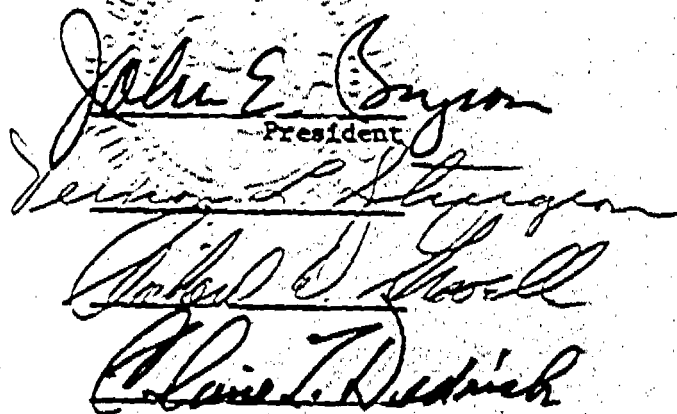 John E. Bryson
President
Vernon L. Sturgeon
Richard D. Gravelle
Claire T. Dedrick